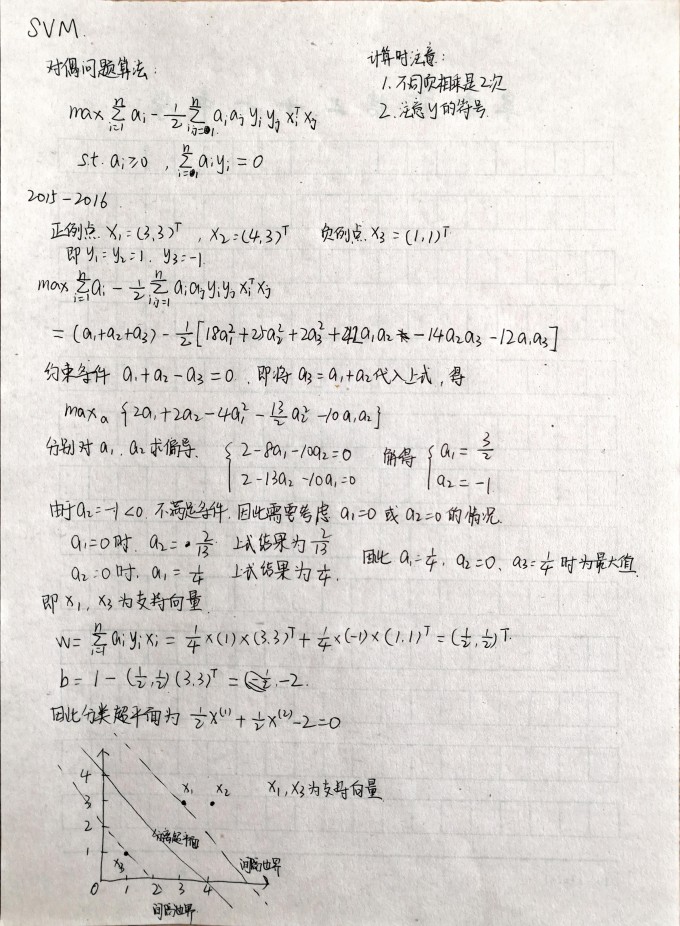 SVM.
对偶问题算法:
max Σ_{i=1}^{n} a_i - 1/2 Σ_{i,j=1}^{n} a_i a_j y_i y_j x_i^T x_j
s.t. a_i ≥ 0 , Σ_{i=1}^{n} a_i y_i = 0
计算时注意:
1. 不同项相乘是2次
2. 注意y的符号.
2015-2016.
正例点 x₁=(3,3)^T , x₂=(4,3)^T 负例点 x₃=(1,1)^T.
即 y₁=y₂=1, y₃=-1.
max Σ_{i=1}^{n} a_i - 1/2 Σ_{i,j=1}^{n} a_i a_j y_i y_j x_i^T x_j
= (a₁+a₂+a₃) - 1/2 [18a₁²+25a₂²+2a₃²+42a₁a₂ - 14a₂a₃ - 12a₁a₃]
约束条件 a₁+a₂-a₃=0 , 即将 a₃=a₁+a₂代入上式, 得
max_a {2a₁+2a₂-4a₁² - 13/2 a₂² - 10a₁a₂}
分别对 a₁, a₂ 求偏导. { 2-8a₁-10a₂=0 2-13a₂-10a₁=0 解得 { a₁= 3/2 a₂=-1
由于a₂=-1<0 不满足条件, 因此需要考虑 a₁=0 或 a₂=0 的情况.
a₁=0时, a₂= 2/13 上式结果为 2/13
a₂=0时, a₁= 1/4 上式结果为 1/4.
因此 a₁=1/4, a₂=0, a₃=1/4 时为最大值.
即 x₁, x₃为支持向量.
w= Σ_{i=1}^{n} a_i y_i x_i = 1/4×(1)×(3,3)^T + 1/4×(-1)×(1,1)^T = (1/2,1/2)^T.
b= 1-(1/2,1/2)(3,3)^T = -2.
因此分类超平面为 1/2 x⁽¹⁾ + 1/2 x⁽²⁾ - 2=0
x₁,x₃为支持向量
4
x₁ x₂
3
2
分离超平面
1
x₃
间隔边界
0 1 2 3 4
间隔边界